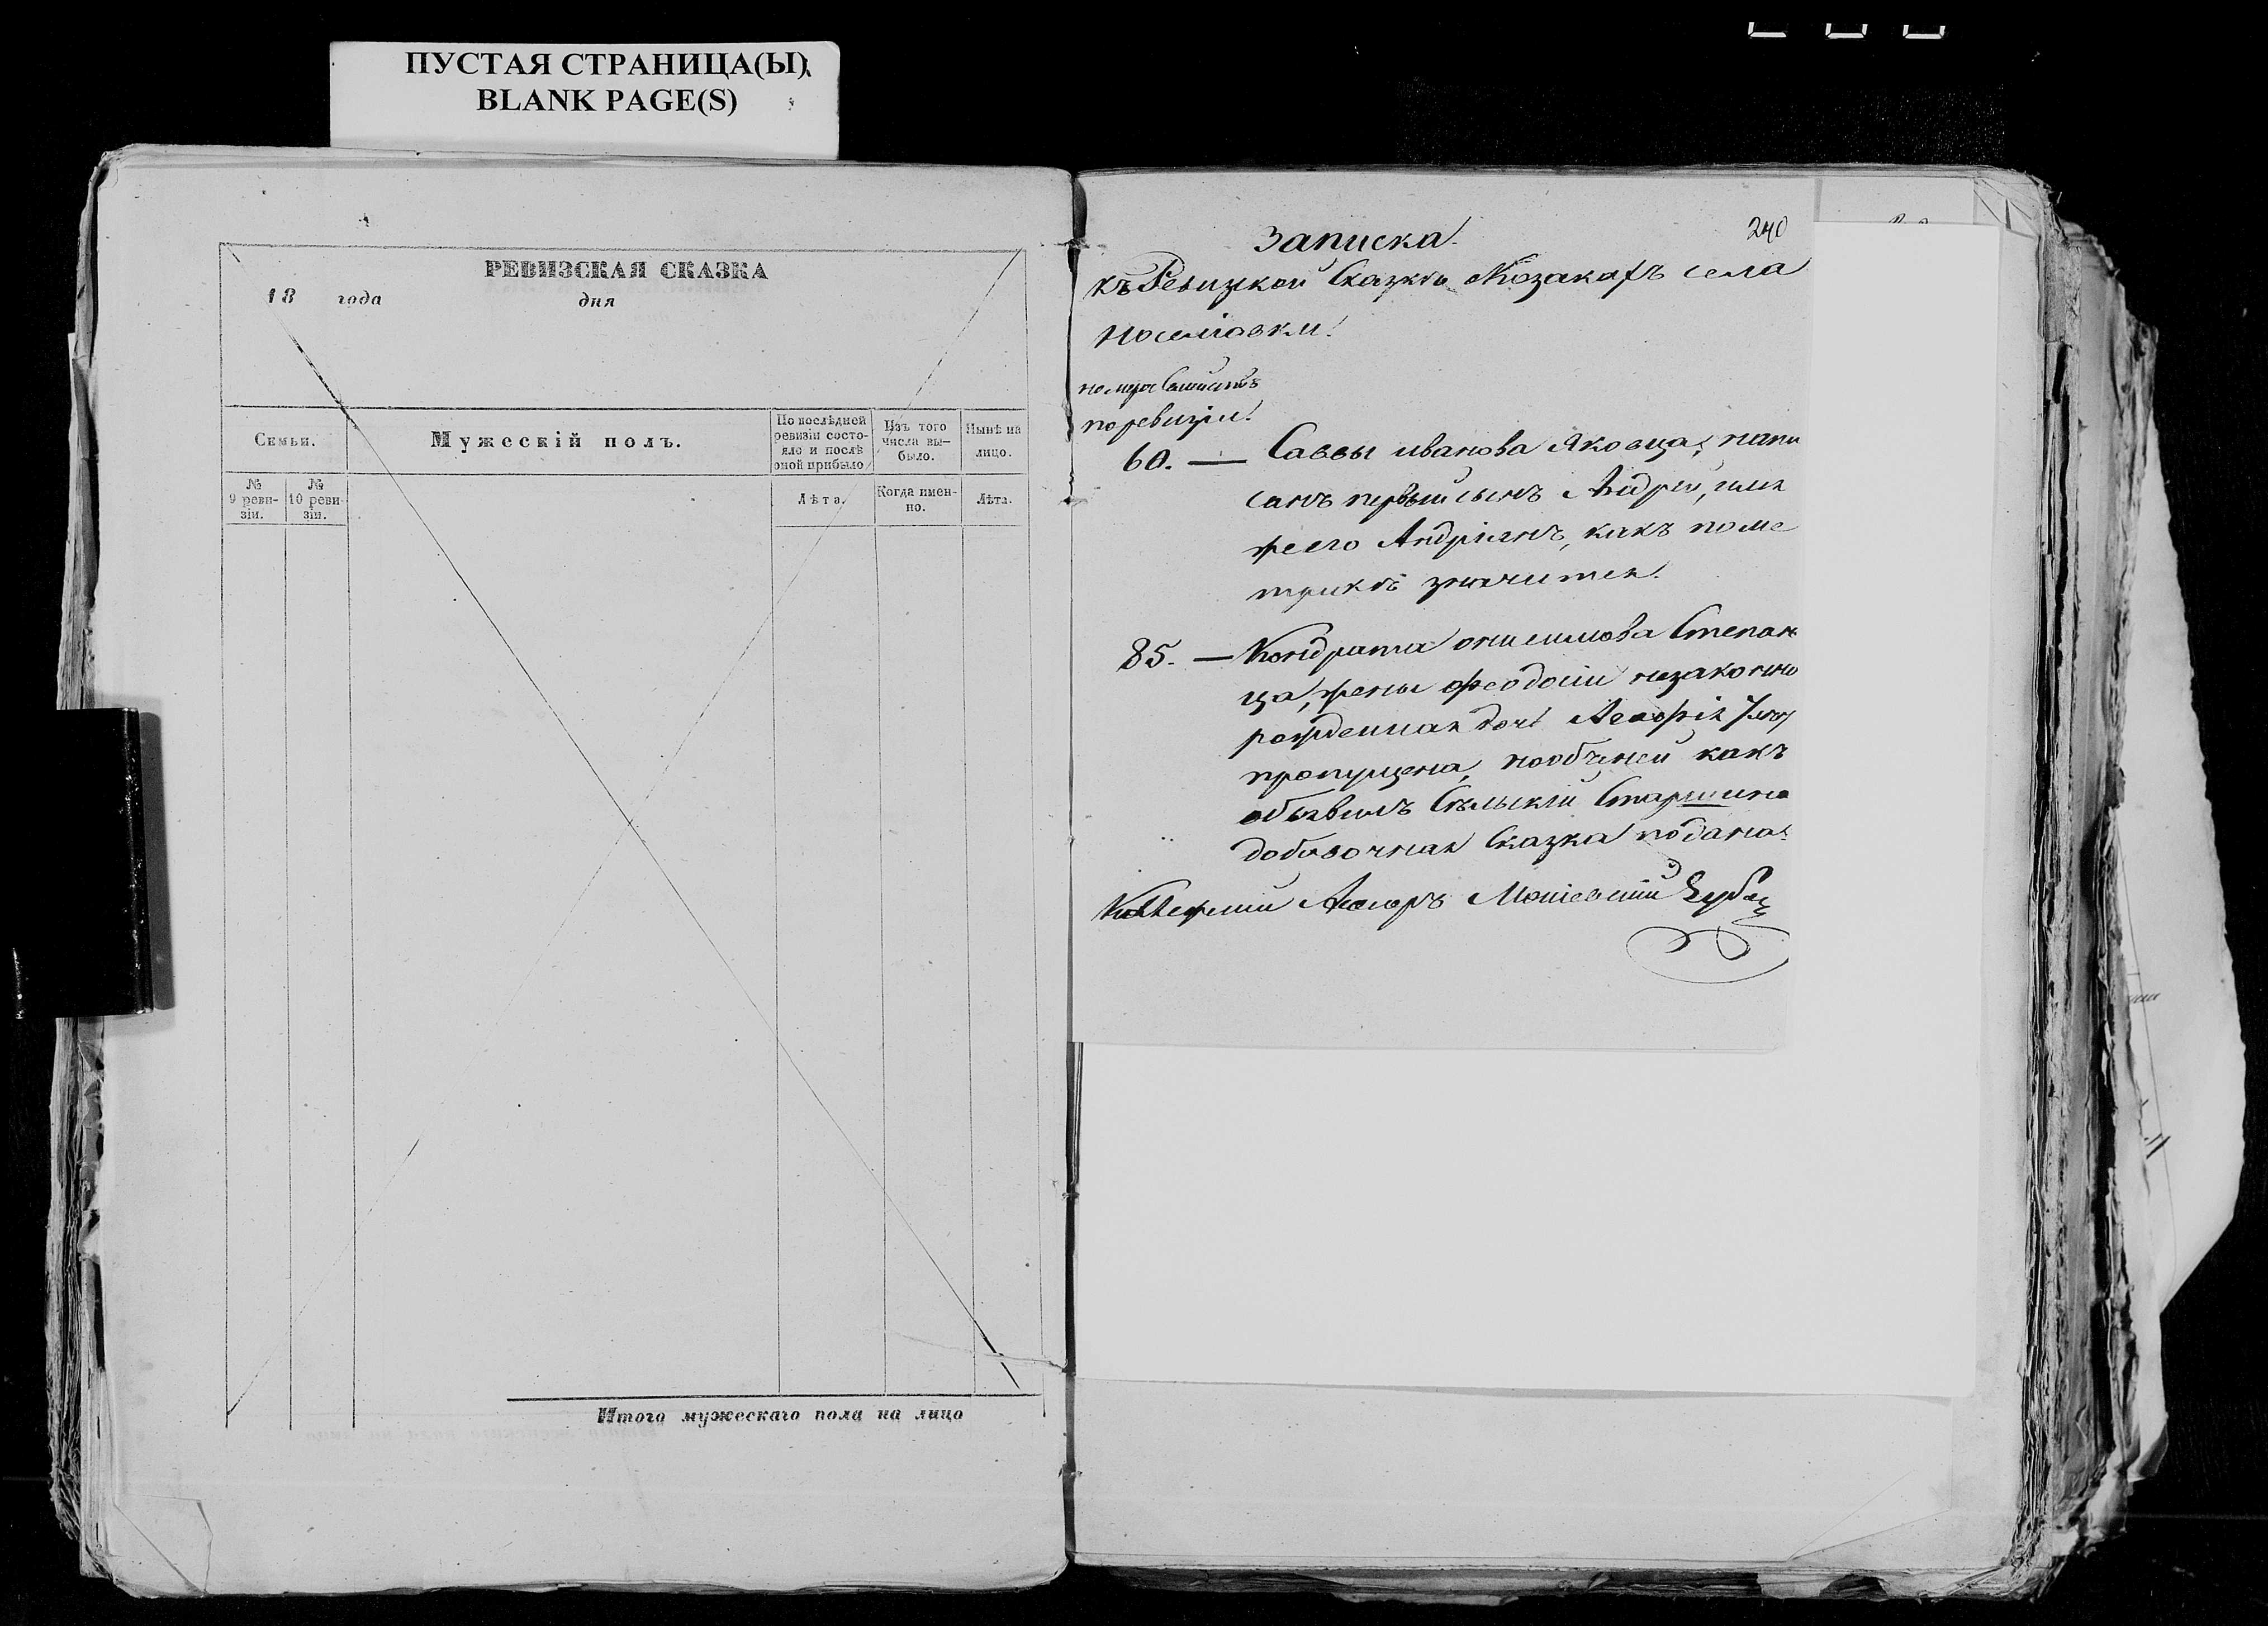 ПУСТАЯ СТРАНИЦА(Ы)
BLANK PAGE(S)
РЕВИЗСКАЯ СКАЗКА
18 года дня
Семьи.
Мужескій полъ.
По послѣдней ревизіи состо-
яло и послѣ оной прибыло
Изъ того числа вы-
было.
Нынѣ на лицо.
№ 9 реви-
зіи.
№ 10 реви-
зіи.
Лѣта.
Когда имен-
но.
Лѣта.
Итого мужескаго пола на лицо
240
Записка
къ Ревизкой Сказкѣ Козакахъ села
по ревизіи
60. — Саввы иванова Яковца, напи
санъ первый сынъ Андрей, имя
же его Андріянъ, какъ по ме
трикѣ значится.
85. — Кондрата онисимова Степан
ца, жены феодосіи незаконно
рожденная дочь
пропущена, но объ ней какъ
объявилъ Сельскій Старшина
добавочная Сказка подана